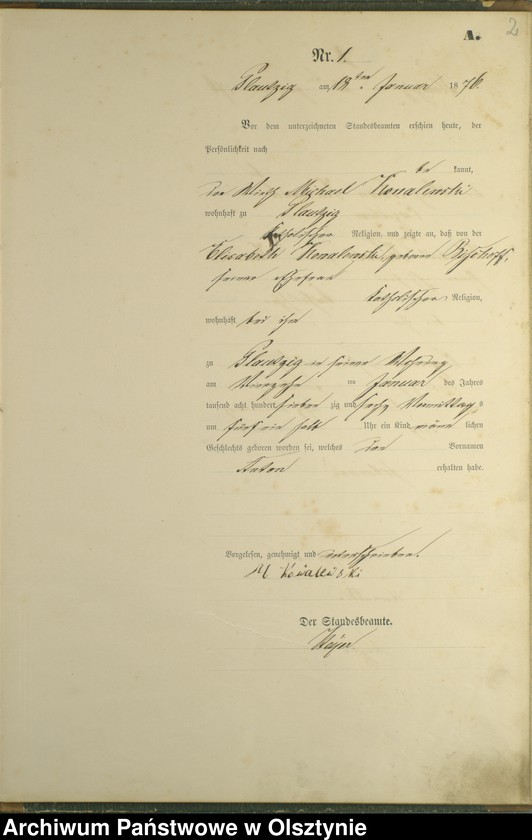 2
A.
Nr. 1.
Plautzig am 18ten Januar 1876.
Vor dem unterzeichneten Standesbeamten erschien heute, der
Persönlichkeit nach
be kannt,
der Wirth Michael Kowalewski
wohnhaft zu Plautzig
katholischer Religion, und zeigte an, daß von der
Elisabeth Kowalewski, geborene Bischoff,
seiner Ehefrau
katholischer Religion,
wohnhaft bei ihm
zu Plautzig in seiner Wohnung
am vierzehn ten Januar des Jahres
tausend acht hundert sieben zig und sechs Vormittags
um fünf ein halb Uhr ein Kind männ lichen
Geschlechts geboren worden sei, welches den Vornamen
Anton erhalten habe.
Vorgelesen, genehmigt und unterschrieben.
M Kowalewski
Der Standesbeamte.
Archiwum Państwowe w Olsztynie